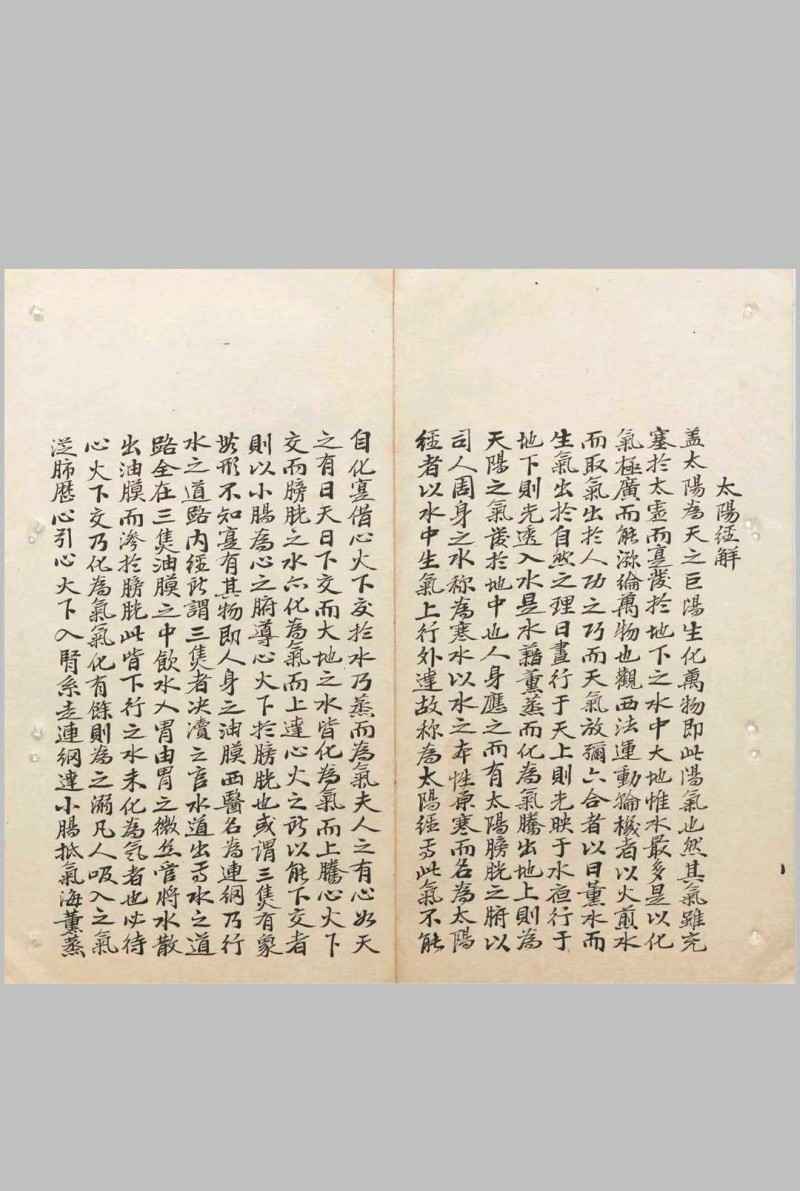 太陽經解
盖太陽為天之巨陽生化萬物即此陽氣也然其氣雖充
塞於太虛而寔發於地下之水中大地惟水最多是以化
氣極廣而能瀰綸萬物也觀西法運動輪機者以火煎水
而取氣出於人功之巧而天氣放彌六合者以日薰水而
生氣出於自然之理日晝行于天上則光映于水夜行于
地下則光透入水是水藉薰蒸而化為氣騰出地上則為
天陽之氣發於地中也人身應之而有太陽膀胱之腑以
司人周身之水称為寒水以水之本性原寒而名為太陽
經者以水中生氣上行外達故称為太陽經焉此氣不能
自化寔借心火下交於水乃蒸而為氣夫人之有心如天
之有日天日下交而大地之水皆化為氣而上騰心火下
交而膀胱之水亦化為氣而上達心火之所以能下交者
則以小腸為心之腑導心火下於膀胱也或謂三焦有象
無形不知寔有其物即人身之油膜西醫名為連網乃行
水之道路內經所謂三焦者决瀆之官水道出焉水之道
路全在三焦油膜之中飲水入胃由胃之微絲管將水散
出油膜而滲於膀胱此皆下行之水未化為氣者也必待
心火下交乃化為氣氣化有餘則為之溺凡人吸入之氣
從肺歷心引心火下入腎系走連網達小腸抵氣海薰蒸